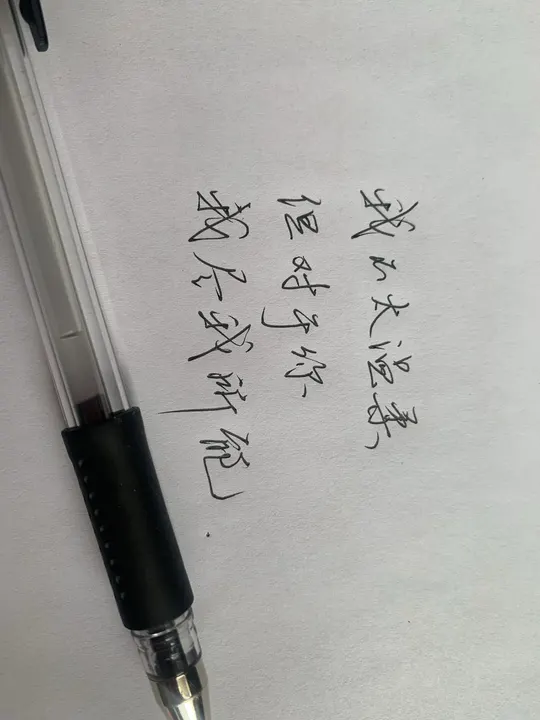 我不太温柔、
但对于你、
我尽我所能.